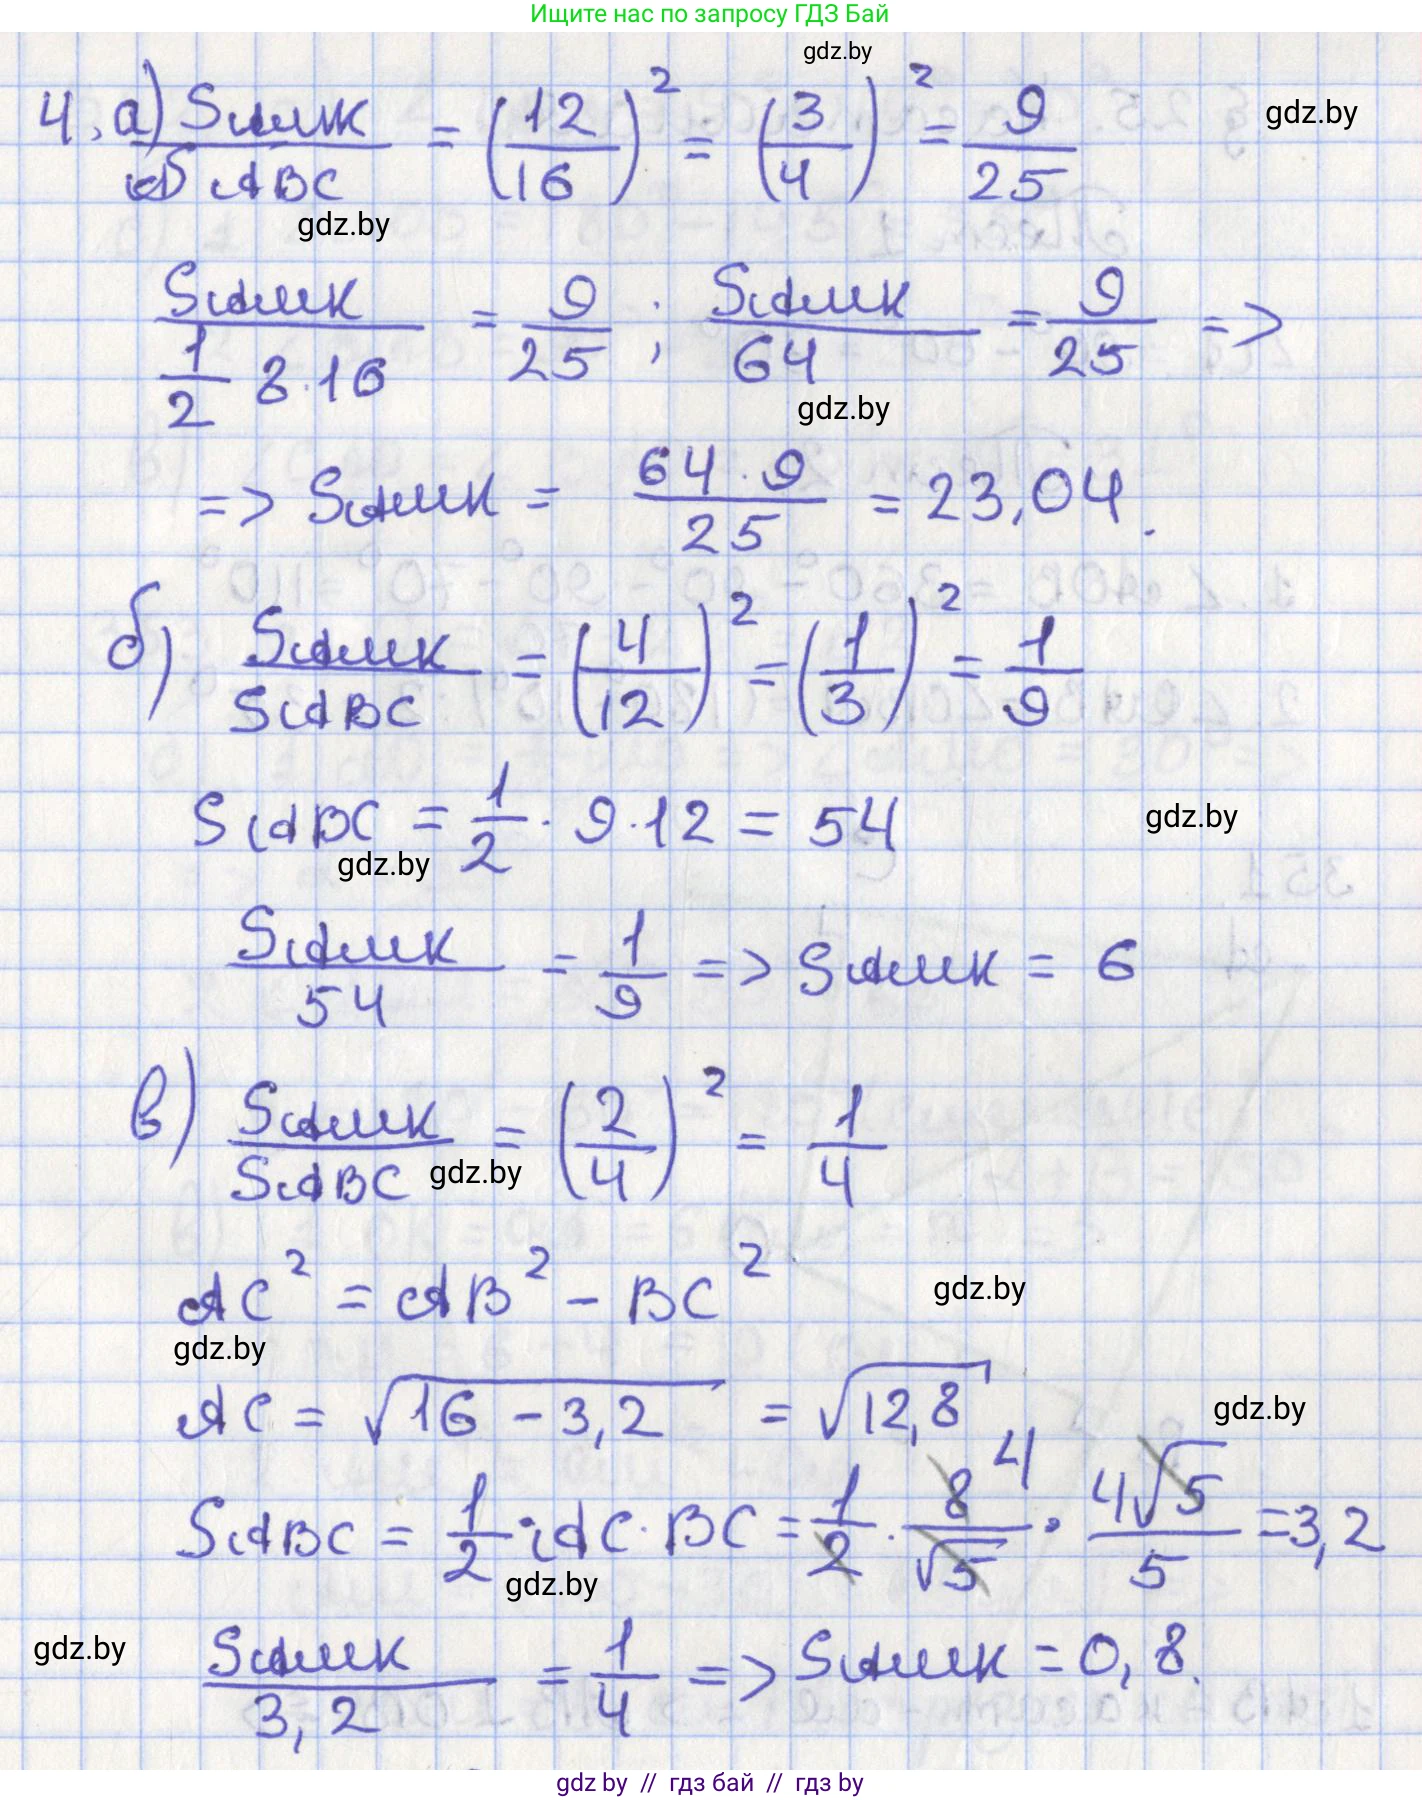 Ищите нас по запросу ГДЗ Бай
gdz.by
4. а) SAMK / SABC = (12/16)² = (3/4)² = 9/25
gdz.by
gdz.by
SAMK / (1/2 8·16) = 9/25 ; SAMK / 64 = 9/25 =>
gdz.by
=> SAMK = 64·9 / 25 = 23,04.
б) SAMK / SABC = (4/12)² = (1/3)² = 1/9
SABC = 1/2 · 9·12 = 54
gdz.by
gdz.by
SAMK / 54 = 1/9 => SAMK = 6
в) SAMK / SABC = (2/4)² = 1/4
gdz.by
AC² = AB² - BC²
gdz.by
gdz.by
AC = √(16 - 3,2) = √12,8
gdz.by
SABC = 1/2 · AC · BC = 1/2 · 8 4/√5 · 4√5/5 = 3,2
gdz.by
gdz.by
SAMK / 3,2 = 1/4 => SAMK = 0,8.
gdz by // гдз бай // гдз by